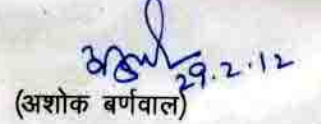 29.2.12
(अशोक बर्णवाल)